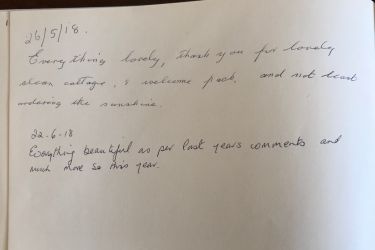 26/5/18.
Everything lovely, thank you for lovely
clean cottage, & welcome pack. and not least
ordering the sunshine.
22.6.18
Everything beautiful as per last years comments and
much more so this year.